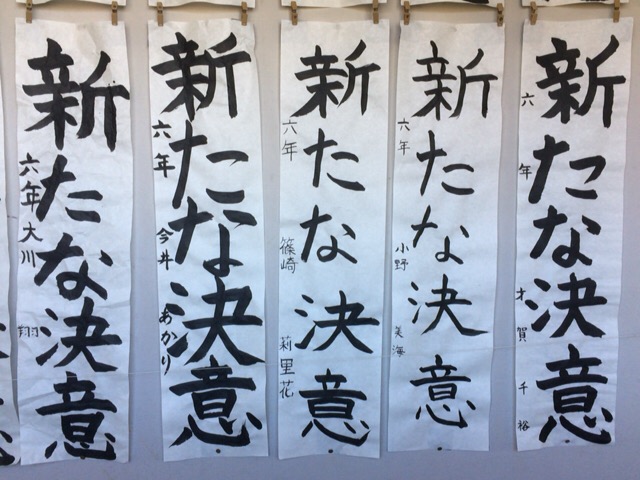 新たな決意
六年 才賀 千裕
新たな決意
六年 小野 美海
新たな決意
六年 篠崎 莉里花
新たな決意
六年 今井 あかり
新たな決意
六年 大川 翔